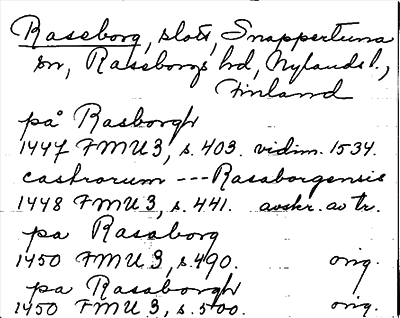 Raseborg, slott, Snappertuna
sn, Raseborgs hd, Nylands l.,
Finland
på Rasborgh
1447 FMU 3, s. 403. vidim. 1534.
castrorum --- Rasaborgensis
1448 FMU 3, s. 441. avskr. av tr.
pa Rasaborg
1450 FMU 3, s. 490. orig.
pa Rasaborgh
1450 FMU 3, s. 500. orig.